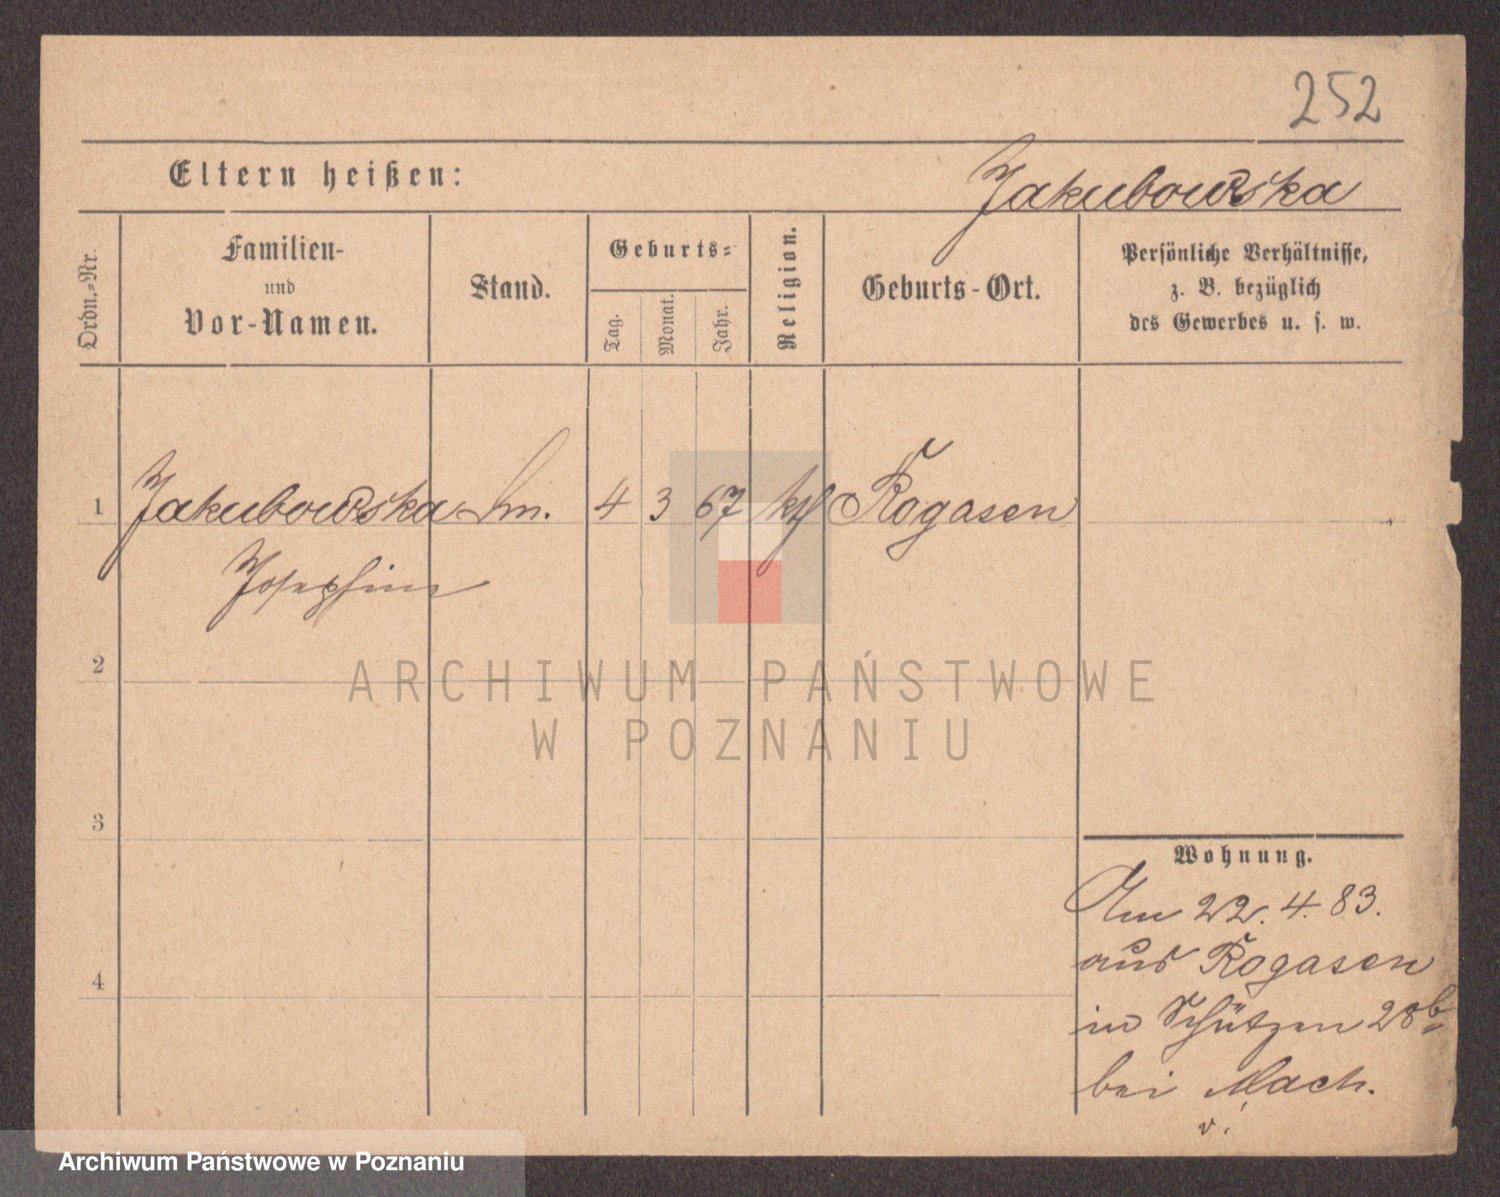 252
Eltern heißen:
Jakubowska
Ordn.-Nr.
Familien-
und
Vor-Namen.
Stand.
Geburts-
Tag.
Monat.
Jahr.
Religion.
Geburts-Ort.
Persönliche Verhältnisse,
z. B. bezüglich
des Gewerbes u. s. w.
1 Jakubowska 4 3 67 kth Rogasen
Josephine
2
3
4
ARCHIWUM PAŃSTWOWE
W POZNANIU
Wohnung.
Am 22. 4. 83.
aus Rogasen
in Schützen 28b
bei Mach.
v.
Archiwum Państwowe w Poznaniu